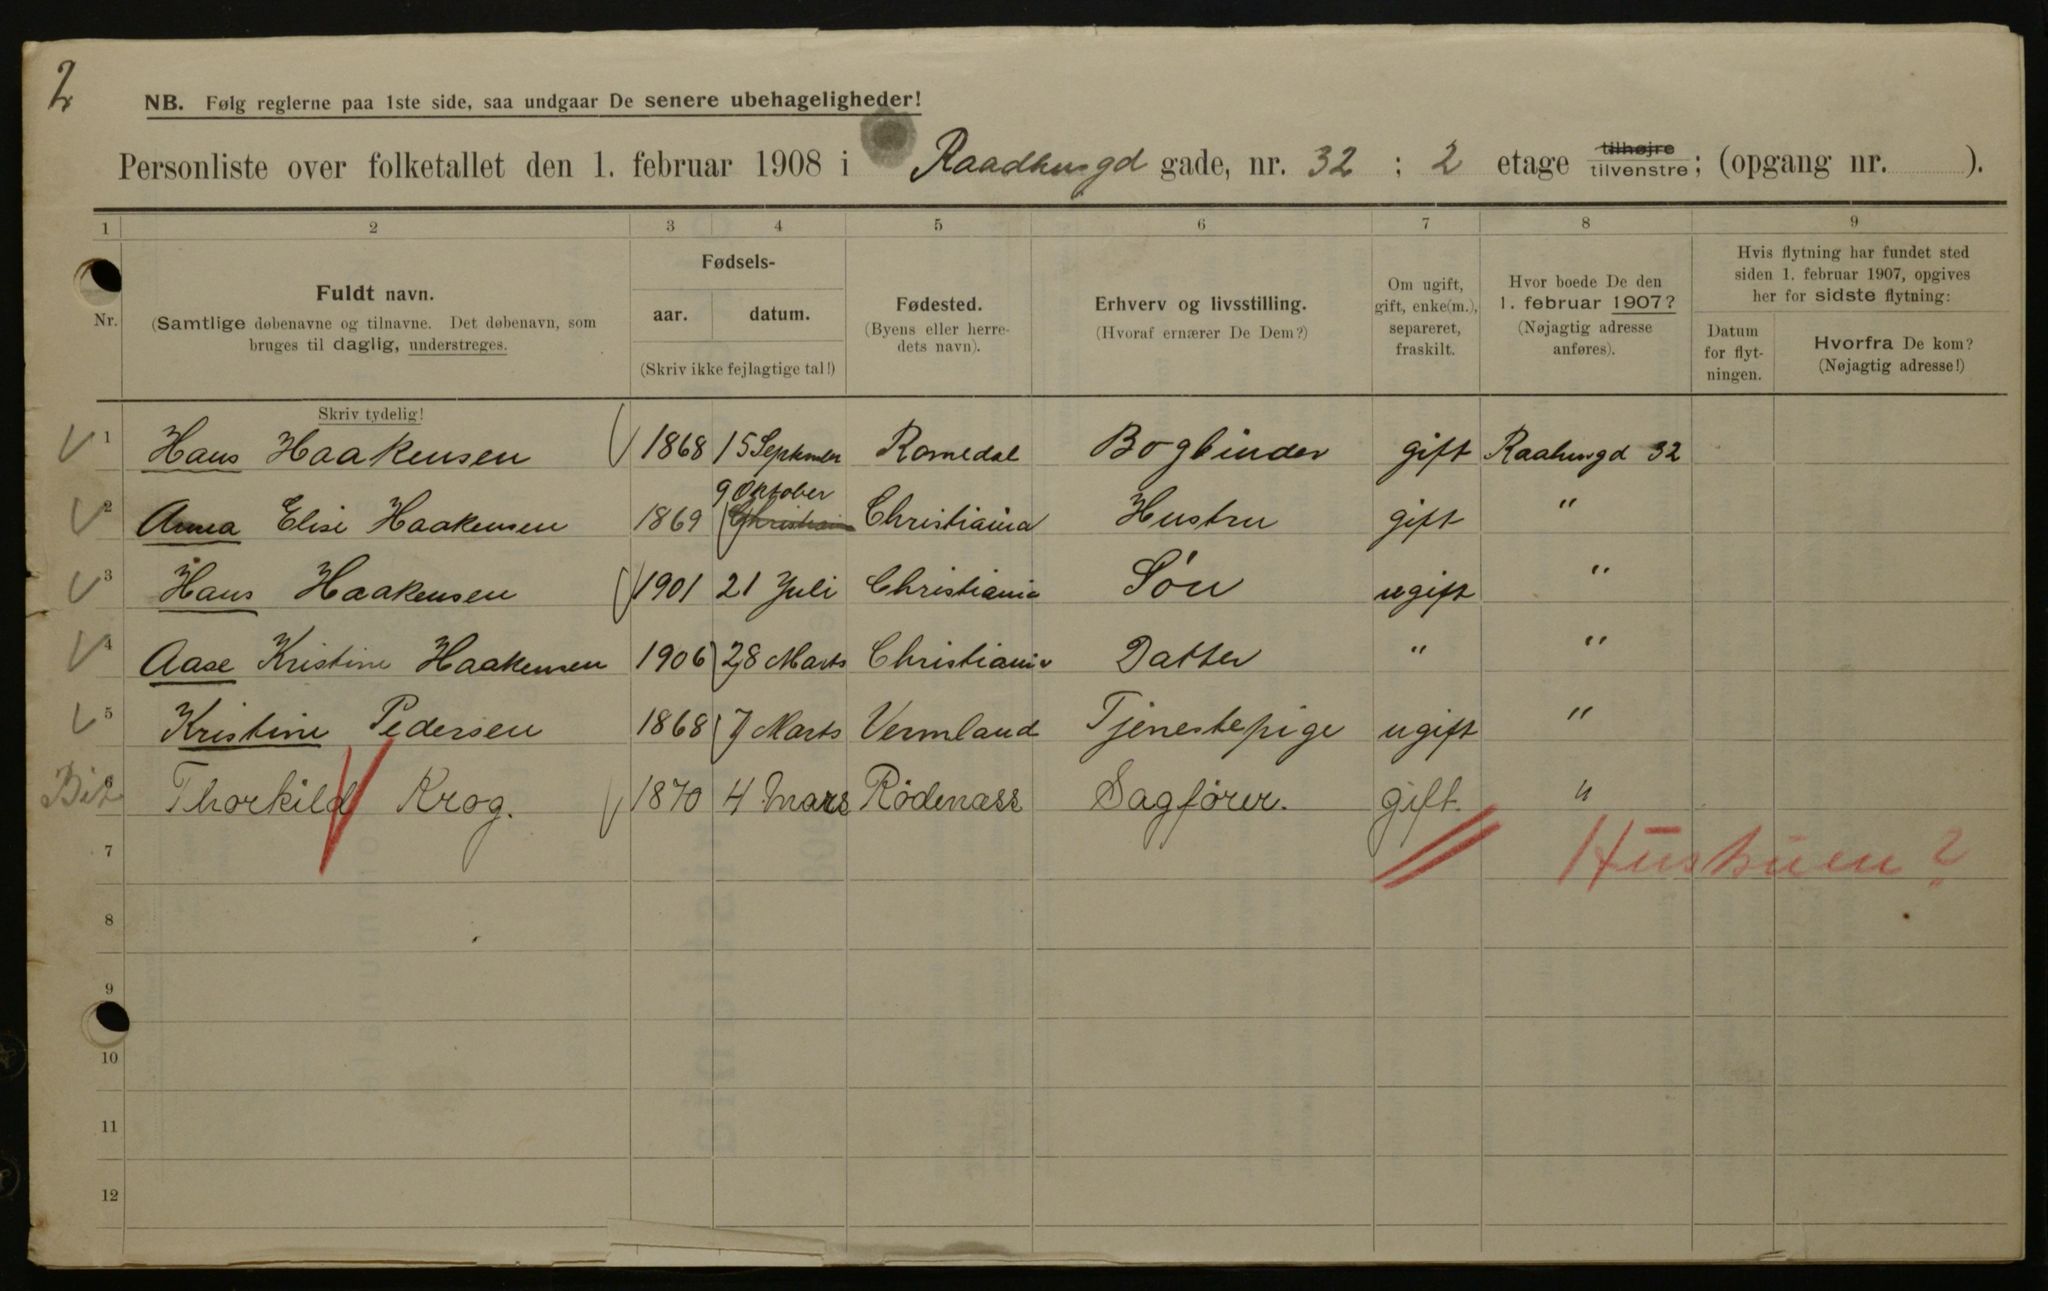 2
NB. Følg reglerne paa 1ste side, saa undgaar De senere ubehageligheder!
Personliste over folketallet den 1. februar 1908 i Raadhusgd gade, nr. 32 : 2 etage tilhøjre tilvenstre; (opgang nr. ).
1 2 3 4 5 6 7 8 9
Nr.
Fuldt navn.
(Samtlige døbenavne og tilnavne. Det døbenavn, som
bruges til daglig, understreges.
Skriv tydelig!
Fødsels-
aar. datum.
(Skriv ikke fejlagtige tal!)
Fødested.
(Byens eller herre-
dets navn).
Erhverv og livsstilling.
(Hvoraf ernærer De Dem?)
Om ugift,
gift, enke(m.),
separeret,
fraskilt.
Hvor boede De den
1. februar 1907?
(Nøjagtig adresse
anføres).
Hvis flytning har fundet sted
siden 1. februar 1907, opgives
her for sidste flytning:
Datum
for flyt-
ningen.
Hvorfra De kom?
(Nøjagtig adresse!)
1 Hans Haakensen 1868 15 September Romedal Bogbinder gift Raahusgd 32
9 Oktober
2 Anna Elise Haakensen 1869 Christiania Christiania Hustru gift "
3 Hans Haakensen 1901 21 Juli Christiania Søn ugift "
4 Aase Kristine Haakensen 1906 28 Marts Christiania Datter " "
5 Kristine Pedersen 1868 7 Marts Vermland Tjenestepige ugift "
6 Thorkild Krog. 1870 4 Mars Rödenæss Sagfører. gift. "
7 Hustruen?
8
9
10
11
12